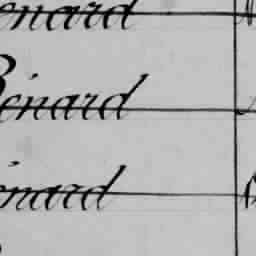 enard
Bénard
énard